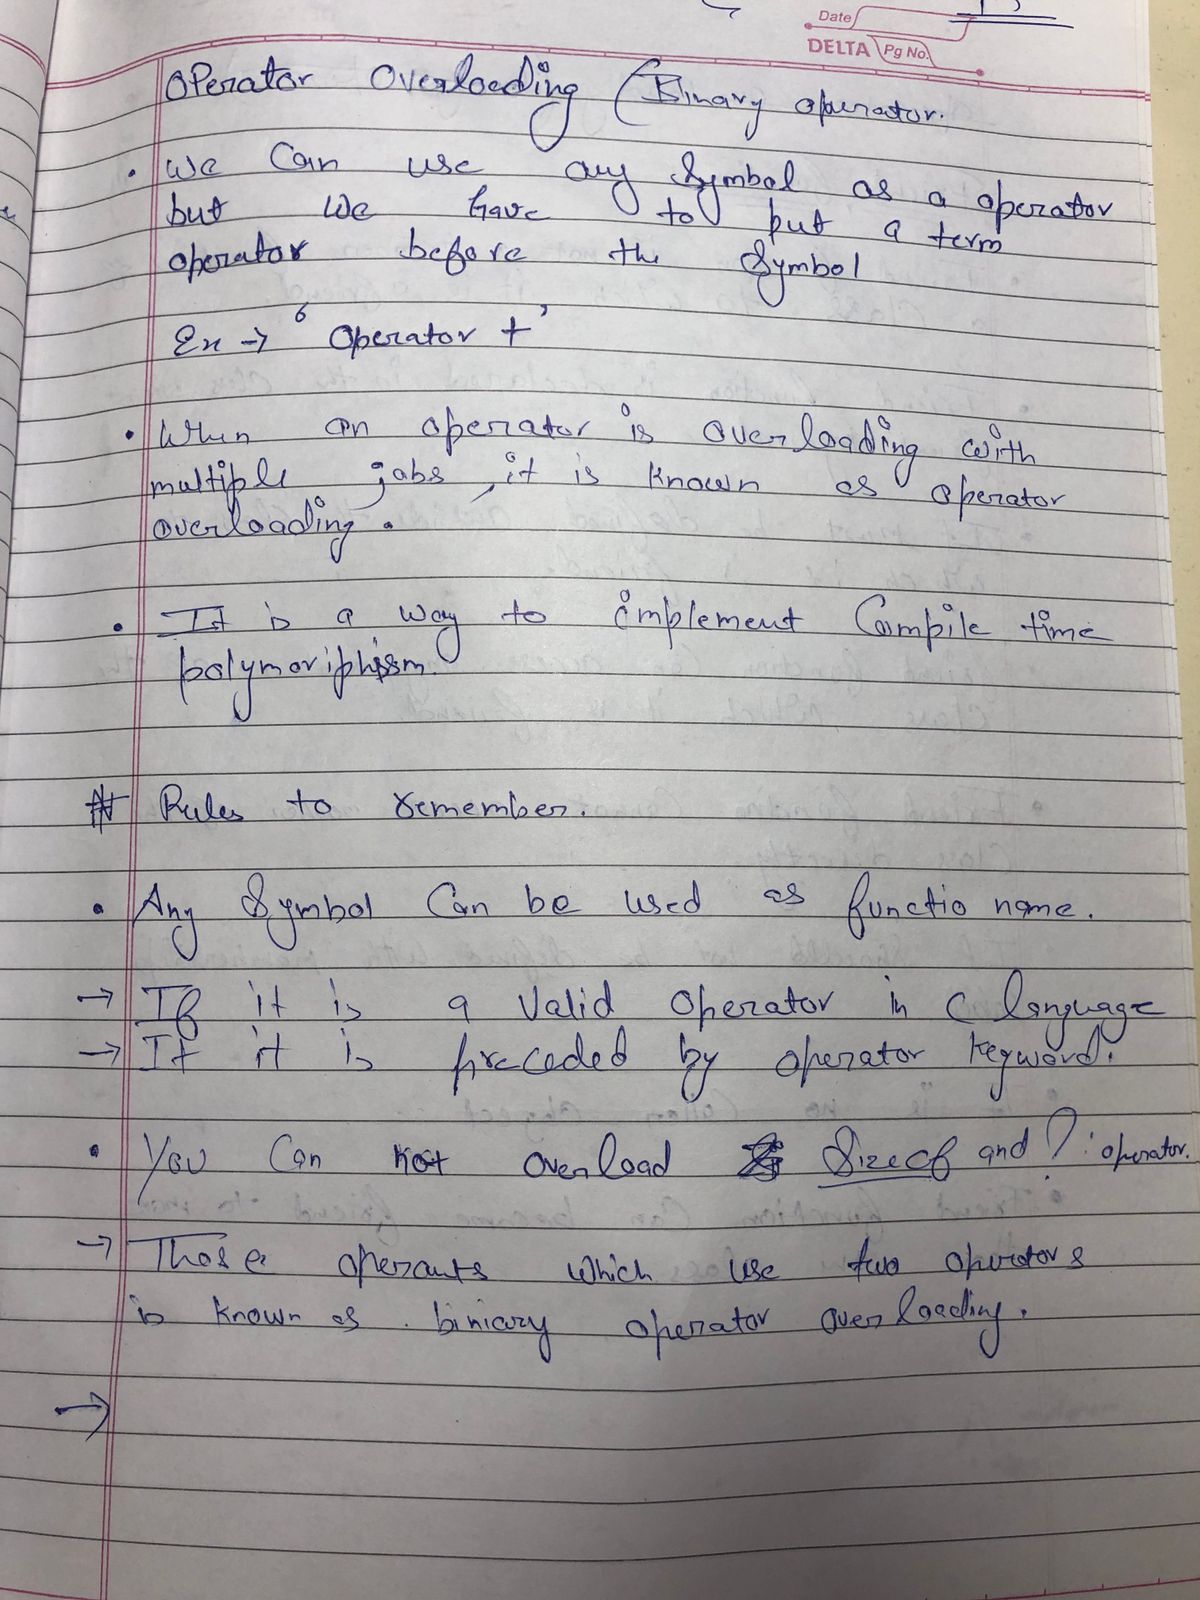 Date
DELTA Pg No.
Operator Overloading (Binary operator.
• We Can use any Symbol as a operator
but we have to put a term
operator before the Symbol
Ex → ' Operator + '
• When an operator is overloading with
multiple jobs, it is known as operator
overloading.
• It is a way to implement Compile time
polymoriphism.
# Rules to remember.
• Any Symbol Can be used as functio name.
→ If it is a valid operator in C language
→ If it is preceded by operator keyword.
• You Can not overload Sizeof and ?: operator.
→ Those operants which use two operators
is known as . biniary operator overloading.
→